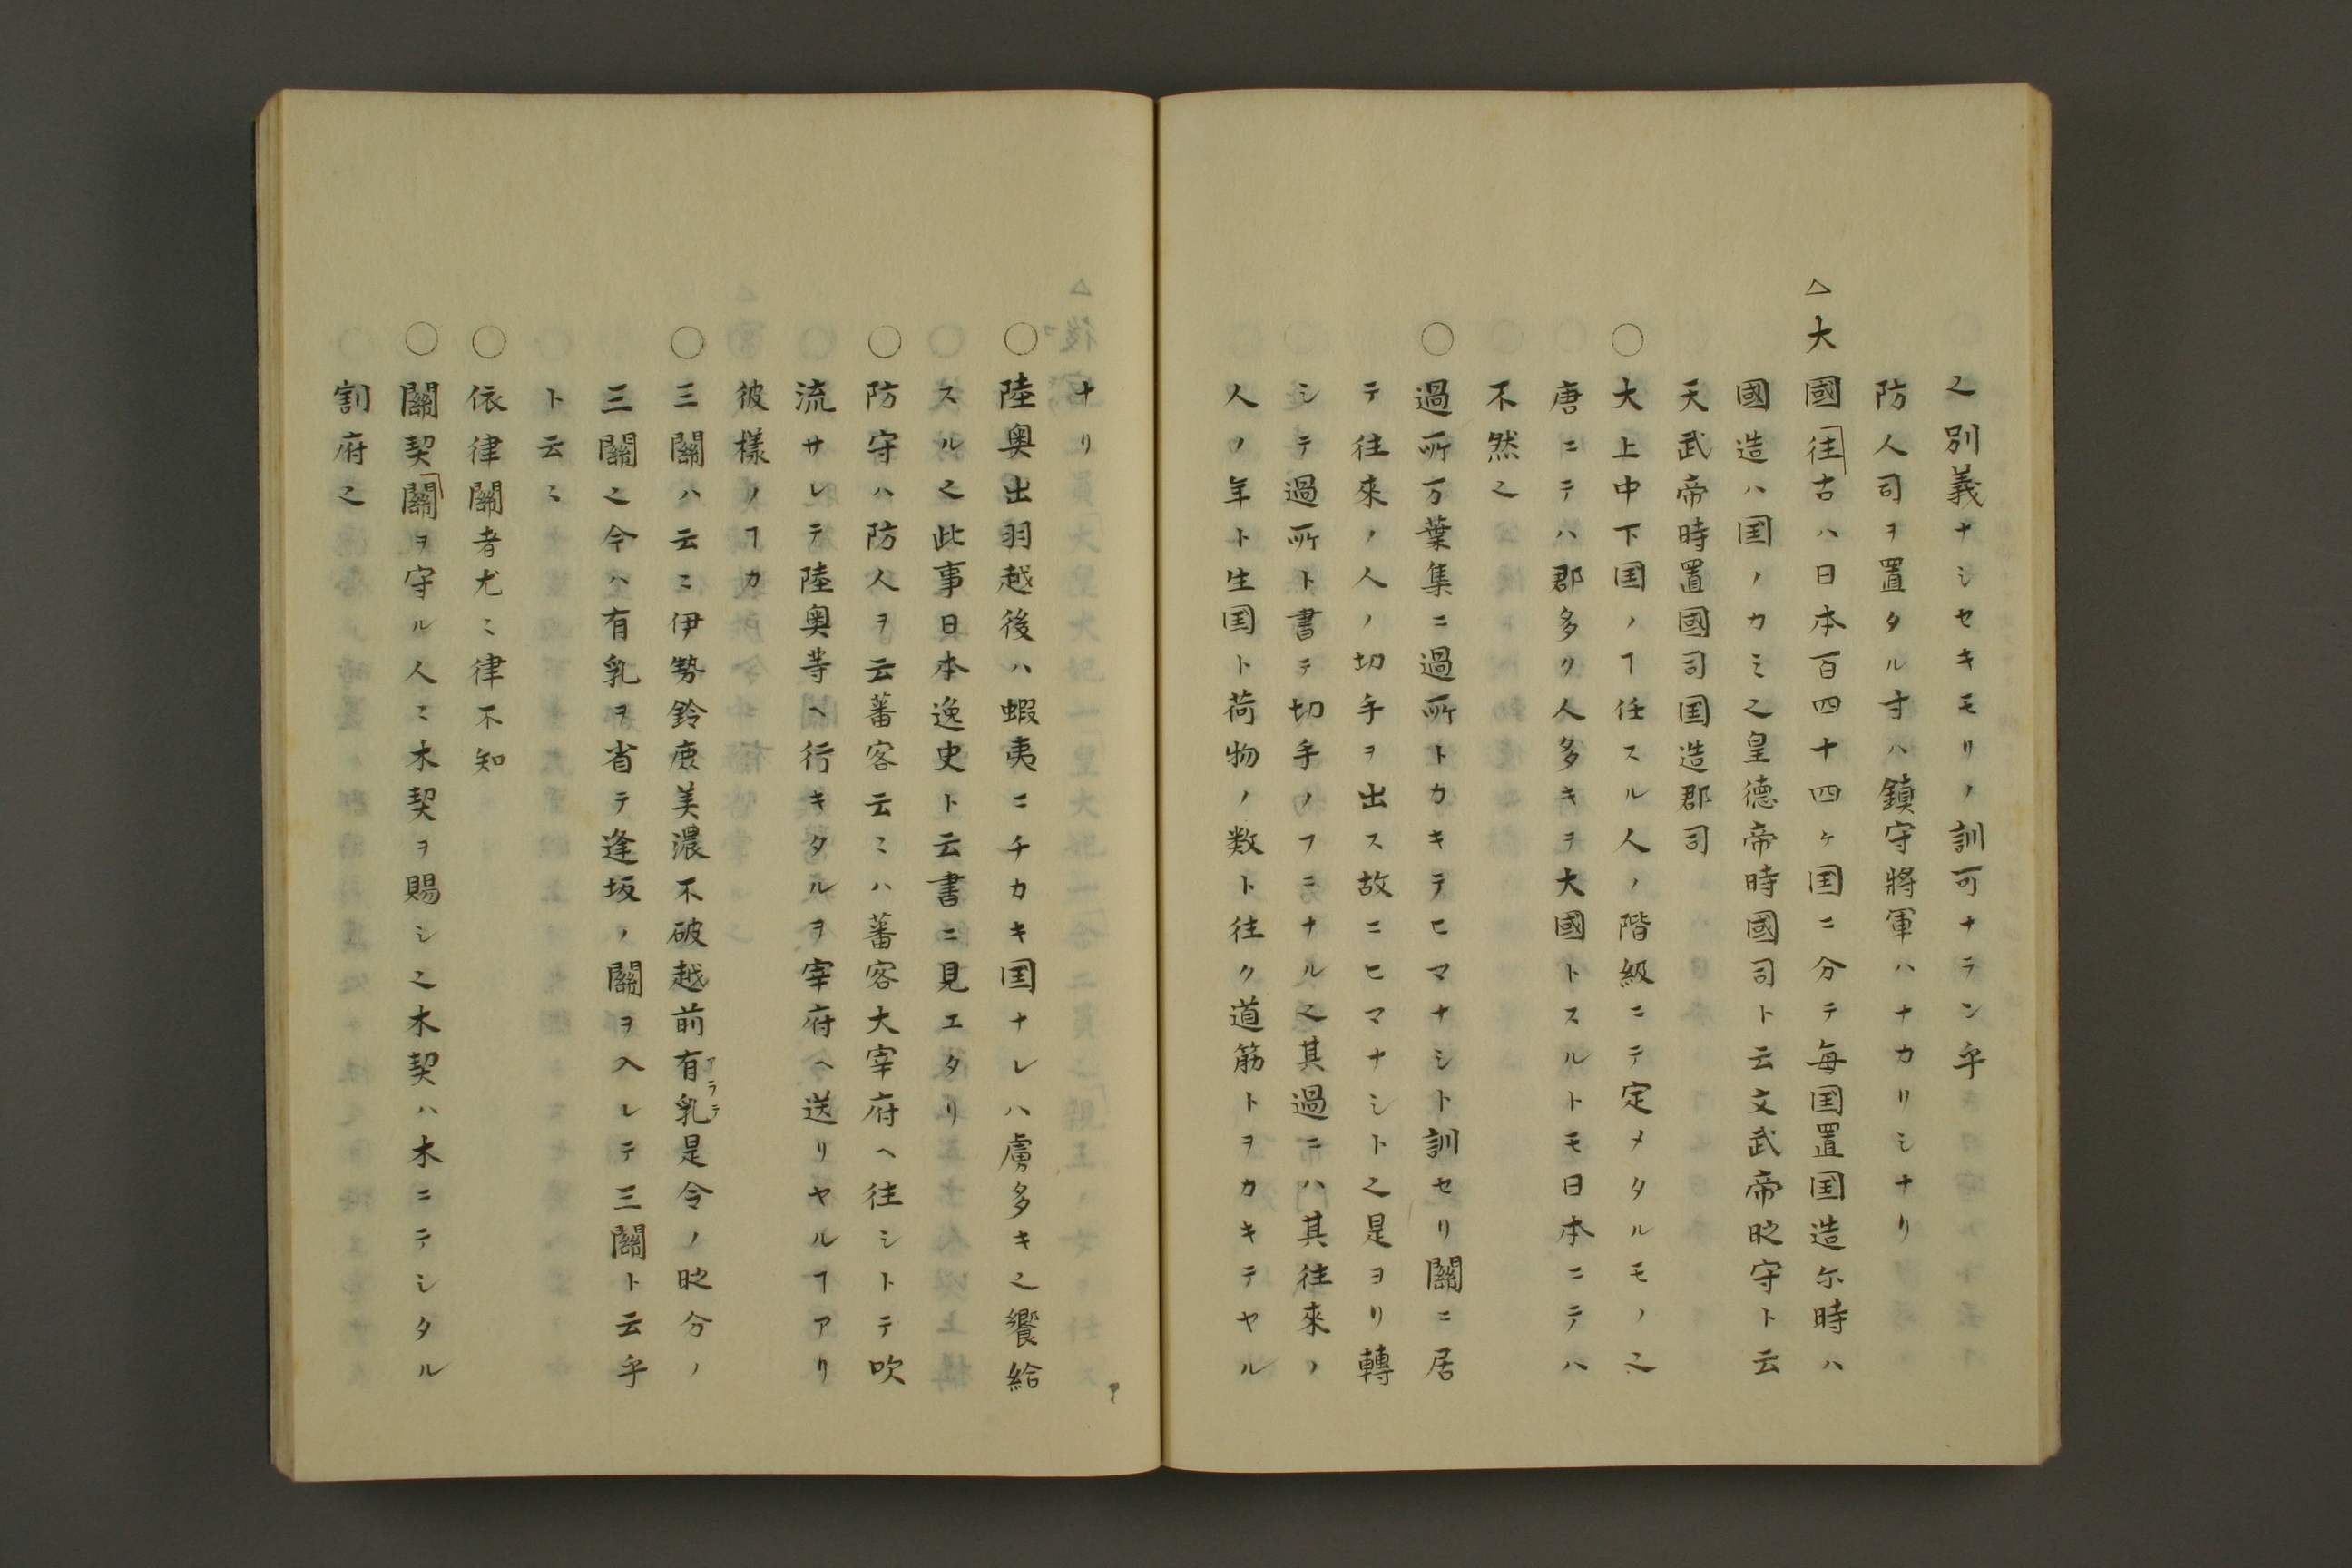 之別義ナシセキモリノ訓可ナラン乎
防人司ヲ置タル寸ハ鎮守將軍ハナカリシナリ
△大國往古ハ日本百四十四ヶ国ニ分テ毎国置国造尓時ハ
國造ハ国ノカミ之皇德帝時國司ト云文武帝时守ト云
天武帝時置國司国造郡司
○大上中下国ノヿ任スル人ノ階級ニテ定メタルモノ之
唐ニテハ郡多ク人多キヲ大國トスルトモ日本ニテハ
不然之
○過所万葉集ニ過所トカキテヒマナシト訓セリ關ニ居
テ往來ノ人ノ切手ヲ出ス故ニヒマナシト之是ヨリ轉
シテ過所ト書テ切手ノフニナル之其過ニハ其往來ノ
人ノ年ト生国ト荷物ノ数ト往ク道筋トヲカキテヤル
ナリ
○陸奥出羽越後ハ蝦夷ニチカキ国ナレハ虜多キ之饗給
スル之此事日本逸史ト云書ニ見エタリ
○防守ハ防人ヲ云蕃客云ミハ蕃客大宰府ヘ往シトテ吹
流サレテ陸奥等ヘ行キタルヲ宰府ヘ送リヤルヿアリ
彼樣ノヿカ
○三關ハ云ミ伊勢鈴鹿美濃不破越前有乳是令ノ时分ノ
アラテ
三關之今ハ有乳ヲ省テ逢坂ノ關ヲ入レテ三關ト云乎
ト云ミ
○依律關者尤ミ律不知
○關契關ヲ守ル人ミ木契ヲ賜シ之木契ハ木ニテシタル
割府之